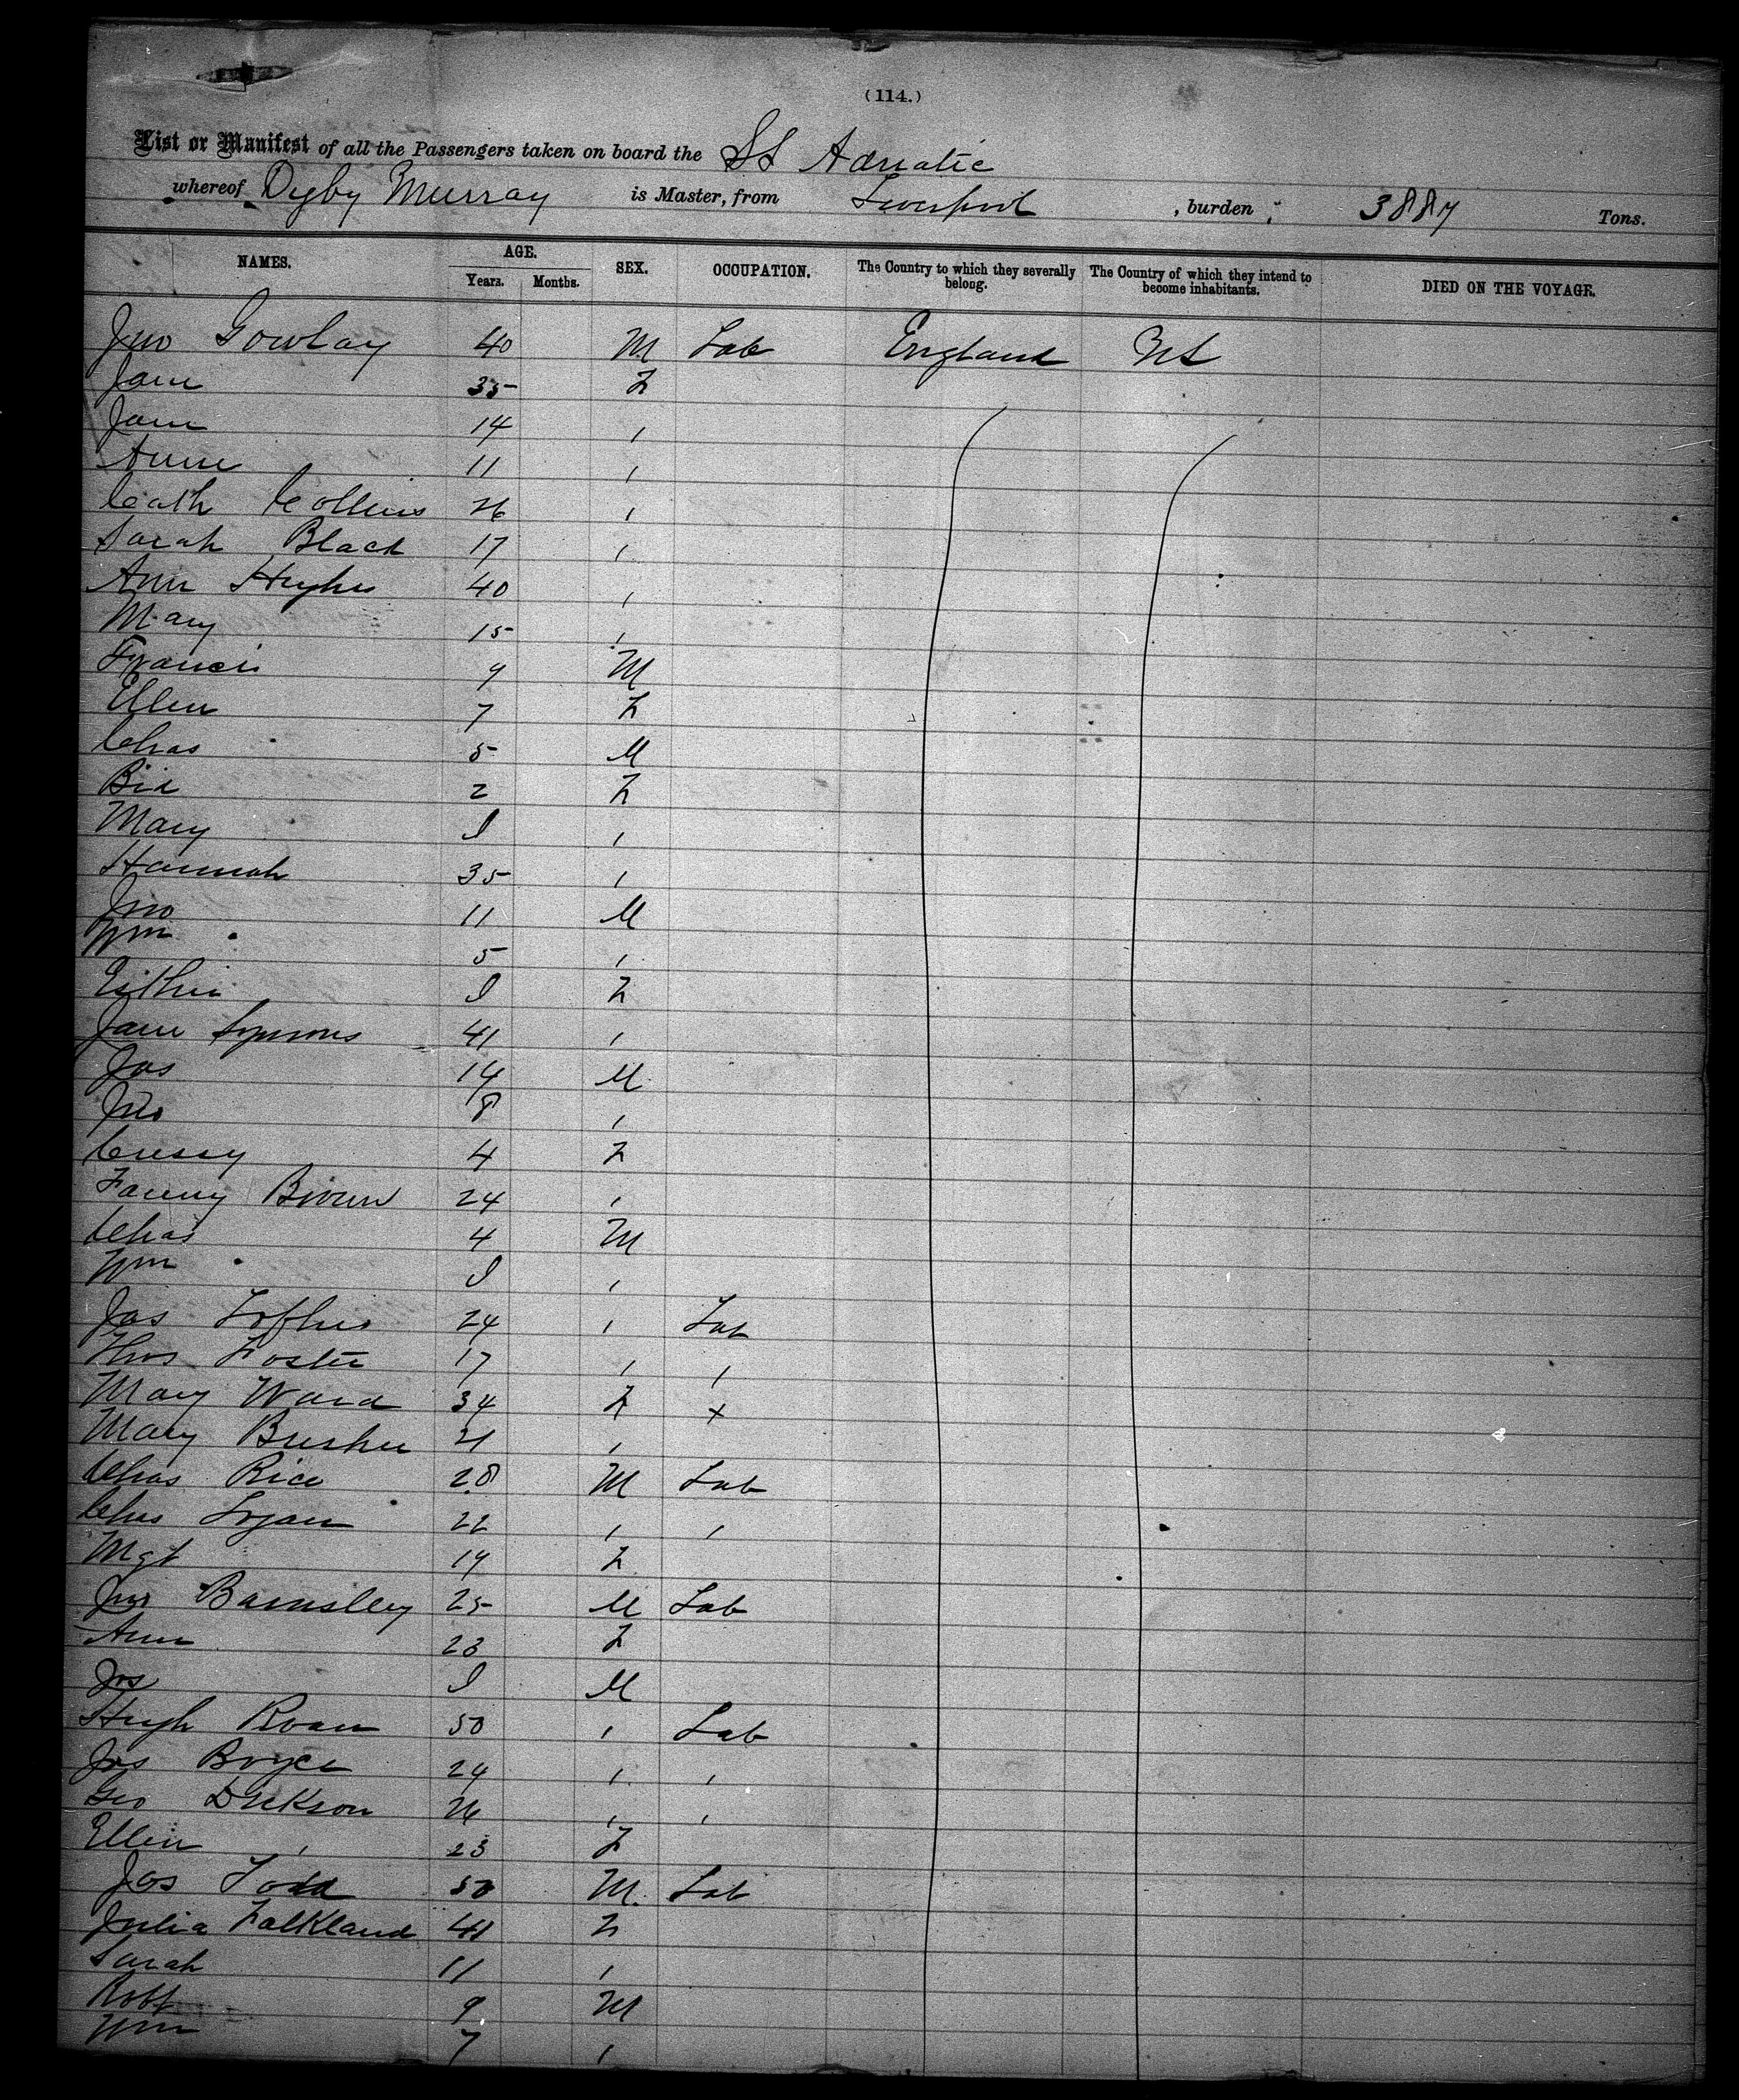 (114.)
List or Manifest of all the Passengers taken on board the SS Adriatic
whereof Digby Murray is Master, from Liverpool, burden 3887 Tons.
NAMES. AGE. Years. Months. SEX. OCCUPATION. The Country to which they severally belong. The Country of which they intend to become inhabitants. DIED ON THE VOYAGE.
Jno Gowlay 40 M Lab England US
Jane 35 F
Jane 14 "
Annie 11 "
Cath Collins 26 "
Sarah Black 17 "
Ann Hughes 40 "
Mary 15 "
Francis 9 M
Ellen 7 F
Chas 5 M
Bid 2 F
Mary I "
Hannah 35 "
Jno 11 M
Wm 5 "
I F
Jane Symons 41 "
Jas 14 M
Jno 8 "
4 F
Fanny Brown 24 "
Chas 4 M
Wm I "
Jas Loftus 24 " Lab
Thos Foster 17 " "
Mary Ward 34 F x
Mary 21 "
Chas Rice 28 M Lab
Chas Logan 22 " "
Mgt 19 F
Jno Barnsley 25 M Lab
Ann 23 F
Jos I M
Hugh Roan 50 " Lab
Jas Boyce 24 " "
Geo Dickson 26 " "
Ellen " 23 F
Jos Todd 50 M Lab
Julia Falkland 41 F
Sarah 11 "
Robt 9 M
Wm 7 "